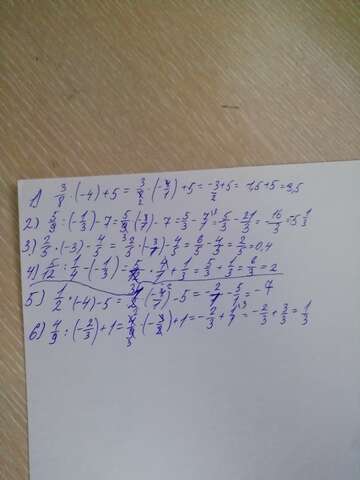 1) 3/8 · (-4) + 5 = 3/8 · (-4/1) + 5 = -3/2 + 5 = -1,5 + 5 = 3,5
2) 5/9 : (-1/3) - 7 = 5/9 · (-3/1) - 7 = 5/3 - 7/1 = 5/3 - 21/3 = 16/3 = 5 1/3
3) 2/5 · (-3) - 4/5 = 2/5 · (-3/1) - 4/5 = 6/5 - 4/5 = 2/5 = 0,4
4) 5/12 : 1/4 - (-1/3) = 5/12 · 4/1 + 1/3 = 5/3 + 1/3 = 6/3 = 2
5) 1/2 · (-4) - 5 = 1/2 · (-4/1) - 5 = -2/1 - 5/1 = -7
6) 4/9 : (-2/3) + 1 = 4/9 · (-3/2) + 1 = -2/3 + 1/1 = -2/3 + 3/3 = 1/3